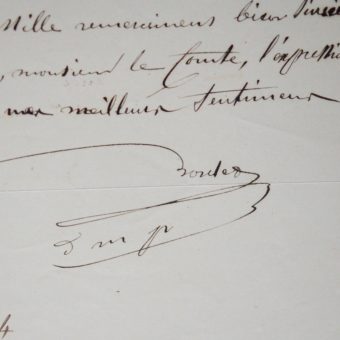 Mille remercimens bien sincè
, monsieur le Comte, l'expressio
mes meilleurs sentimens
D m p
4